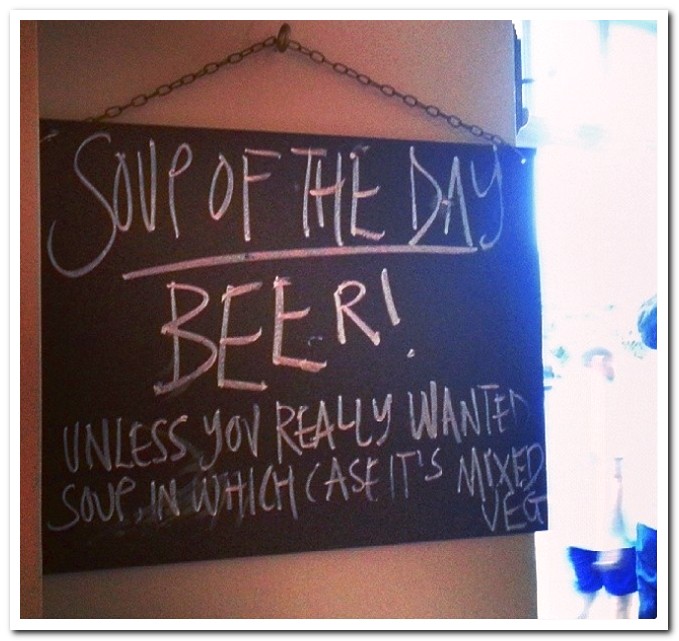 SOUP OF THE DAY
BEER!
UNLESS YOU REALLY WANTED
SOUP IN WHICH CASE IT'S MIXED
VEG